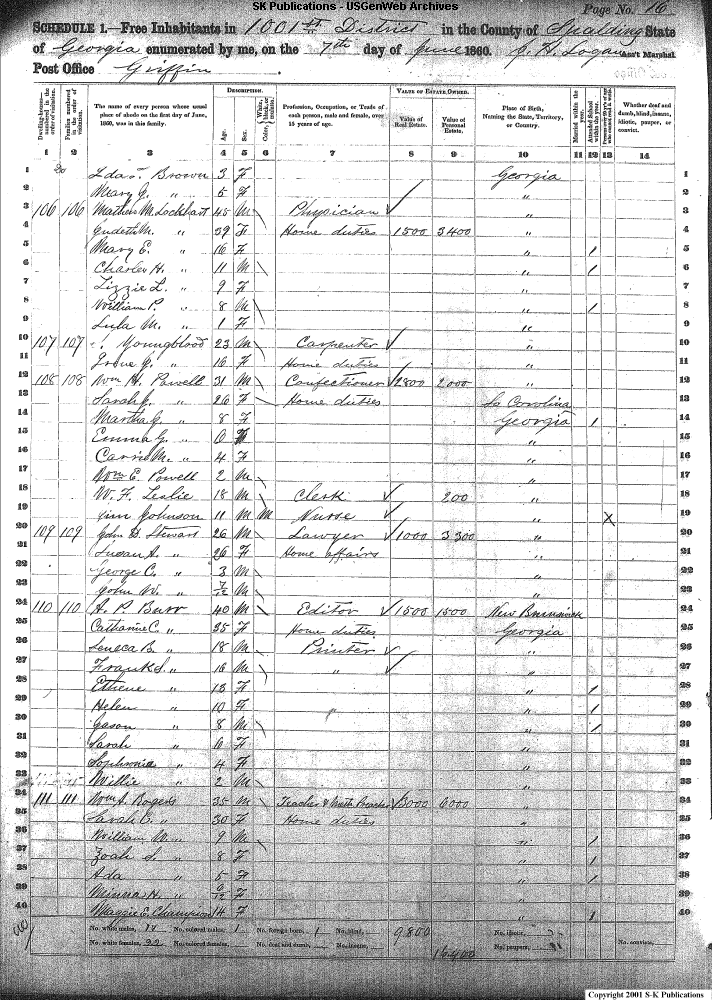 SK Publications - USGenWeb Archives
Page No. 16
SCHEDULE 1.—Free Inhabitants in 1001st District in the County of Spalding State
of Georgia enumerated by me, on the 7th day of June 1860. Logan Ass't Marshal.
Post Office Griffin
Dwelling-houses—numbered in the order of visitation. Families numbered in the order of visitation. The name of every person whose usual place of abode on the first day of June, 1860, was in this family. DESCRIPTION. Age. Sex. Color, White, black, or mulatto. Profession, Occupation, or Trade of each person, male and female, over 15 years of age. VALUE OF ESTATE OWNED. Value of Real Estate. Value of Personal Estate. Place of Birth, Naming the State, Territory, or Country. Married within the year. Attended School within the year. Whether deaf and dumb, blind, insane, idiotic, pauper, or convict.
1 2 3 4 5 6 7 8 9 10 11 12 13 14
1 Brown 3 F Georgia 1
2 Mary G. " 5 F " 2
3 106 106 Lockhart 45 M Physician " 3
4 M. " 39 F Home duties 1500 3400 " 4
5 Mary E. " 16 F " / 5
6 Charles H. " 11 M " / 6
7 Lizzie L. " 9 F " 7
8 William P. " 8 M " / 8
9 Lula M. " 1 F " 9
10 107 107 Youngblood 23 M Carpenter " 10
11 " 16 F Home duties " 11
12 108 108 Wm H. Powell 31 M Confectioner 2800 2000 " 12
13 Sarah J. " 26 F Home duties So Carolina 13
14 Martha G. " 8 F Georgia / 14
15 Emma G. " 6 F " 15
16 Carrie M. " 4 F " 16
17 Wm E. Powell 2 M " 17
18 W. F. Leslie 18 M Clerk 200 " 18
19 Jim Johnson 11 M M Nurse " X 19
20 109 109 John D. Stewart 26 M Lawyer 1000 3300 " 20
21 Susan A. " 26 F Home affairs " 21
22 George C. " 3 M " 22
23 John W. " 7/12 M " 23
24 110 110 A. P. Burr 40 M Editor 1500 1500 New Brunswick 24
25 Catharine C. " 35 F Home duties Georgia 25
26 Seneca B. " 18 M Printer " 26
27 Frank S. " 16 M " " 27
28 " 13 F " / 28
29 Helen " 10 F " " / 29
30 " 8 M " / 30
31 Sarah " 6 F " 31
32 Sophronia " 4 F " 32
33 Willie " 2 M " 33
34 111 111 Wm. Rogers 35 M Teacher & Meth. Preacher 3000 6000 " 34
35 Sarah C. " 30 F Home duties " 35
36 William W. " 9 M " / 36
37 " 8 F " / 37
38 Ada " 5 F " / 38
39 Minna H. " 6/12 F " 39
40 Maggie E. Champion 14 F " / 40
No. white males, No. colored males, 1 No. foreign born, 1 No. blind, 9800 No. idiotic,
No. white females, 22 No. colored females, No. deaf and dumb, No. insane, 16400 No. paupers, No. convicts,
Copyright 2001 S-K Publications